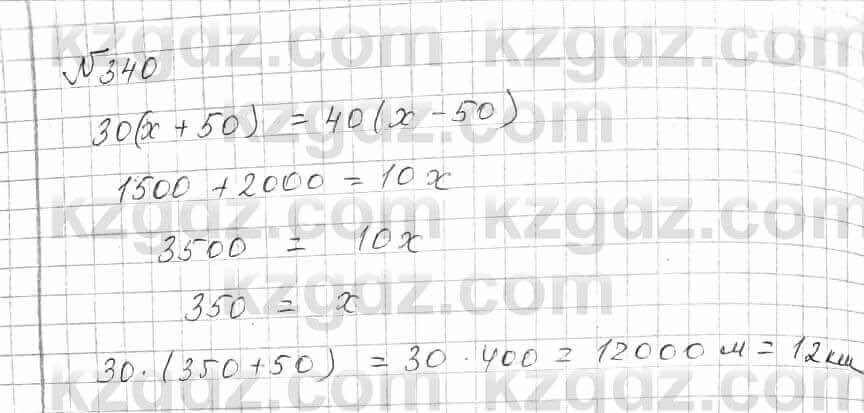 №340
30(x + 50) = 40(x - 50)
1500 + 2000 = 10x
3500 = 10x
350 = x
30·(350+50) = 30·400 = 12000 м = 12км
kzgdz.com kzgdz.com
kzgdz.com
kzgdz.com kzgdz.com
kzgdz.com
kzgdz.com kzgdz.com